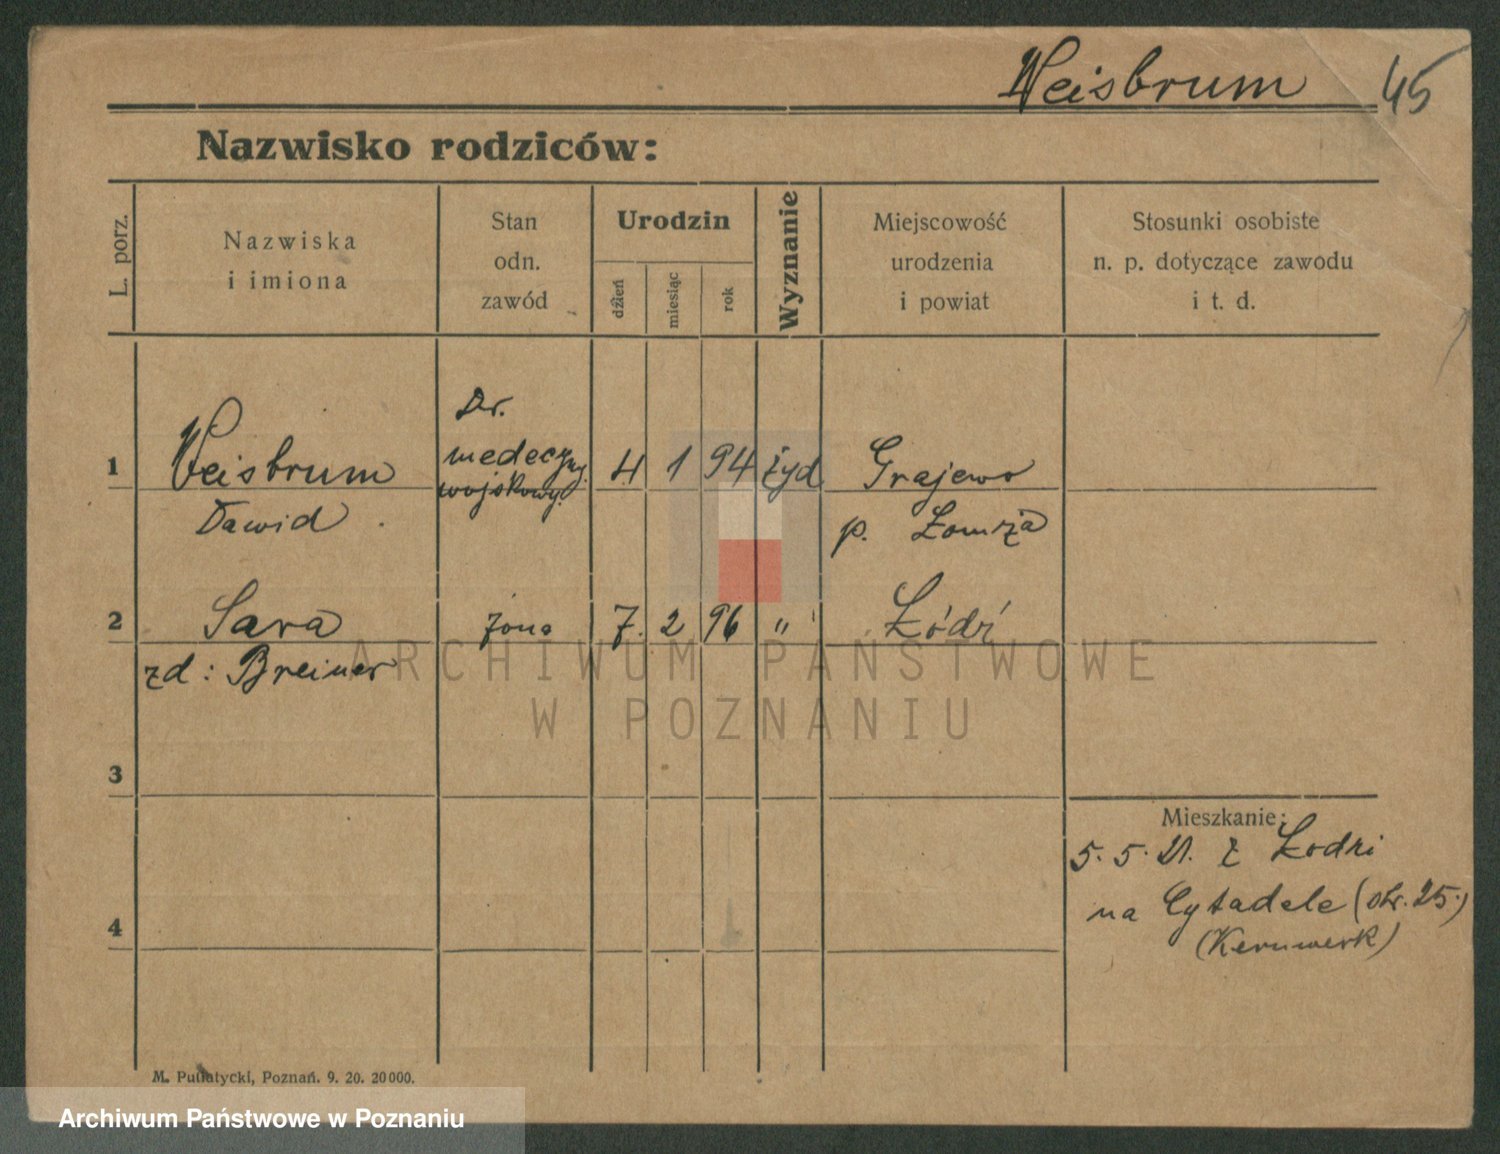 Weisbrum 45
Nazwisko rodziców:
L. porz.
Nazwiska
i imiona
Stan
odn.
zawód
Urodzin
dźień
miesiąc
rok
Wyznanie
Miejscowość
urodzenia
i powiat
Stosunki osobiste
n. p. dotyczące zawodu
i t. d.
1
Weisbrum
Dawid
Dr.
medeczny
wojskowy.
4 1 94 żyd
Grajewo
p. Łomża
2
Sara
zd: Breiner
żona
7. 2 96 "
Łódź
3
4
Mieszkanie:
5. 5. 21. z Łodzi
na Cytadele (otr. 25.)
(Kernwerk)
M. Putiatycki, Poznań. 9. 20. 20000.
ARCHIWUM PAŃSTWOWE
W POZNANIU
Archiwum Państwowe w Poznaniu